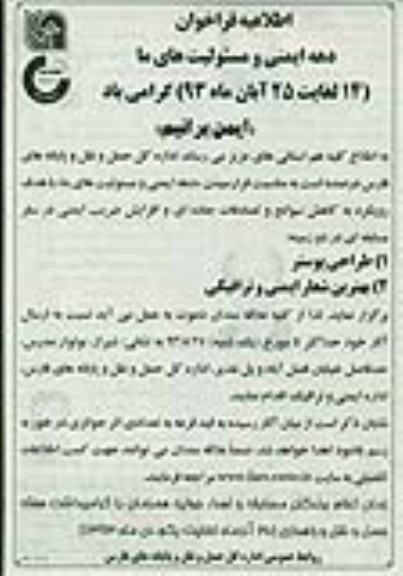 اطلاعیه فراخوان
دهه ایمنی و مسئولیت های ما
(۱۴ لغایت ۲۵ آبان ماه ۹۳) گرامی باد
«ایمن برانیم»
به اطلاع کلیه هم استانی های عزیز می رساند اداره کل حمل و نقل و پایانه های
فارس درصدد است به مناسبت فرارسیدن دهه ایمنی و مسئولیت های ما با هدف
رویکرد به کاهش سوانح و تصادفات جاده ای و افزایش ضریب ایمنی در سفر
مسابقه ای در دو زمینه:
۱) طراحی پوستر
۲) بهترین شعار ایمنی و ترافیکی
برگزار نماید. لذا از کلیه علاقه مندان دعوت به عمل می آید نسبت به ارسال
آثار خود حداکثر تا مورخ به نشانی: شیراز، بولوار مدرس،
حدفاصل خیابان فضل آباد و پل غدیر، اداره کل حمل و نقل و پایانه های فارس،
اداره ایمنی و ترافیک اقدام نمایند.
شایان ذکر است از میان آثار رسیده به قید قرعه به تعدادی اثر جوایزی در خور به
رسم یادبود اهدا خواهد شد. ضمناً علاقه مندان می توانند جهت کسب اطلاعات
تکمیلی به سایت مراجعه فرمایند.
زمان اعلام برندگان مسابقه و اهداء جوایز همزمان با
حمل و نقل و راهداری
روابط عمومی اداره کل حمل و نقل و پایانه های فارس